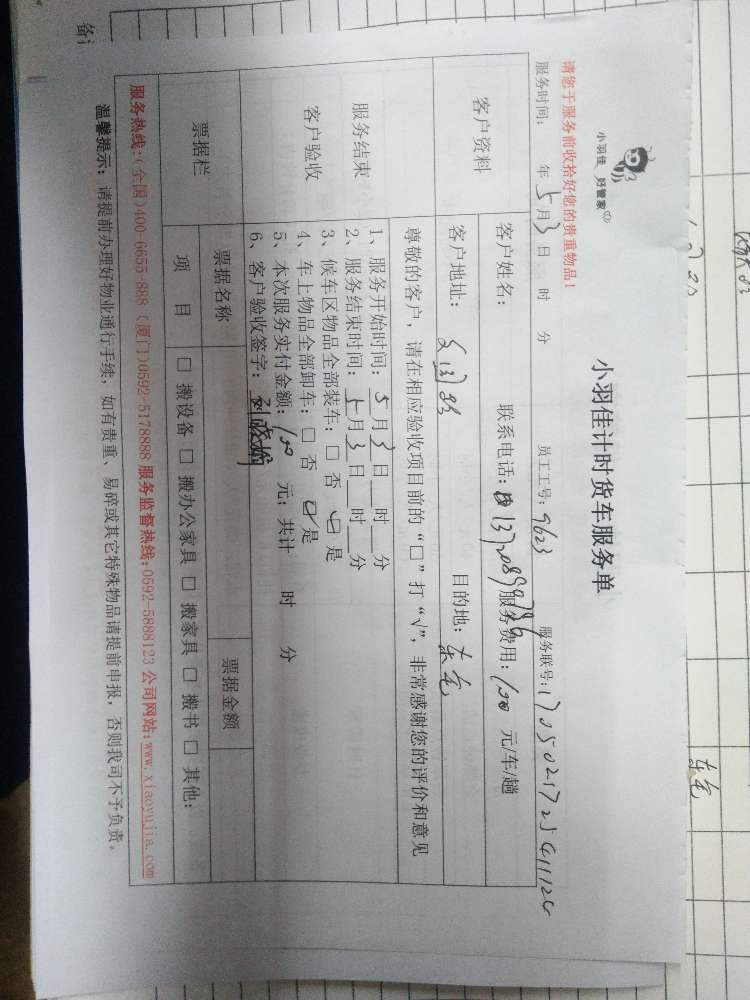 小羽佳 好管家
小羽佳计时货车服务单
请您于服务前收拾好您的贵重物品!
员工工号: 9623
服务联号: 1705021725411124
服务时间: 年 5 月 3 日 时 分
客户资料
客户姓名:
联系电话:
服务费用: 100 元/车/趟
客户地址:
目的地: 东宅
服务结束
客户验收
尊敬的客户，请在相应验收项目前的“□”打“√”，非常感谢您的评价和意见
1、服务开始时间: 5 月 3 日 时 分
2、服务结束时间: 5 月 3 日 时 分
3、候车区物品全部装车: □ 否 ☑ 是
4、车上物品全部卸车: □ 否 ☑ 是
5、本次服务实付金额: 100 元; 共计 时 分
6、客户验收签字:
票据栏
票据名称
票据金额
项 目
□ 搬设备 □ 搬办公家具 □ 搬家具 □ 搬书 □ 其他:
服务热线:(全国)400-6655-888 (厦门)0592-5178888 服务监督热线:0592-5888123 公司网站:www.xiaoyujia.com
温馨提示: 请提前办理好物业通行手续, 如有贵重、易碎或其它特殊物品请提前申报, 否则我司不予负责。
东宅